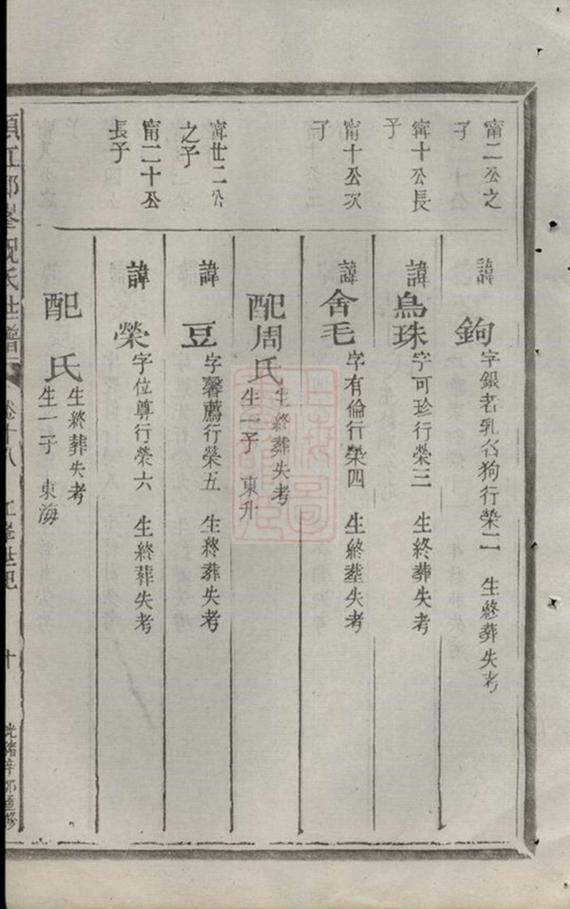 甯二公之
子
諱
鉤
字銀者乳名狗行榮二 生終葬失考
甯十公長
子
諱
烏珠
字可珍行榮三 生終葬失考
甯十公次
子
諱
舍毛
字有倫行榮四 生終葬失考
配周氏
生終葬失考
生一子 東升
甯廿二公
之子
諱
豆
字馨薦行榮五 生終葬失考
甯二十公
長子
諱
榮
字位尊行榮六 生終葬失考
配 氏
生終葬失考
生一子 東海
氏世譜
卷十八
世紀
十
光緒辛卯重修